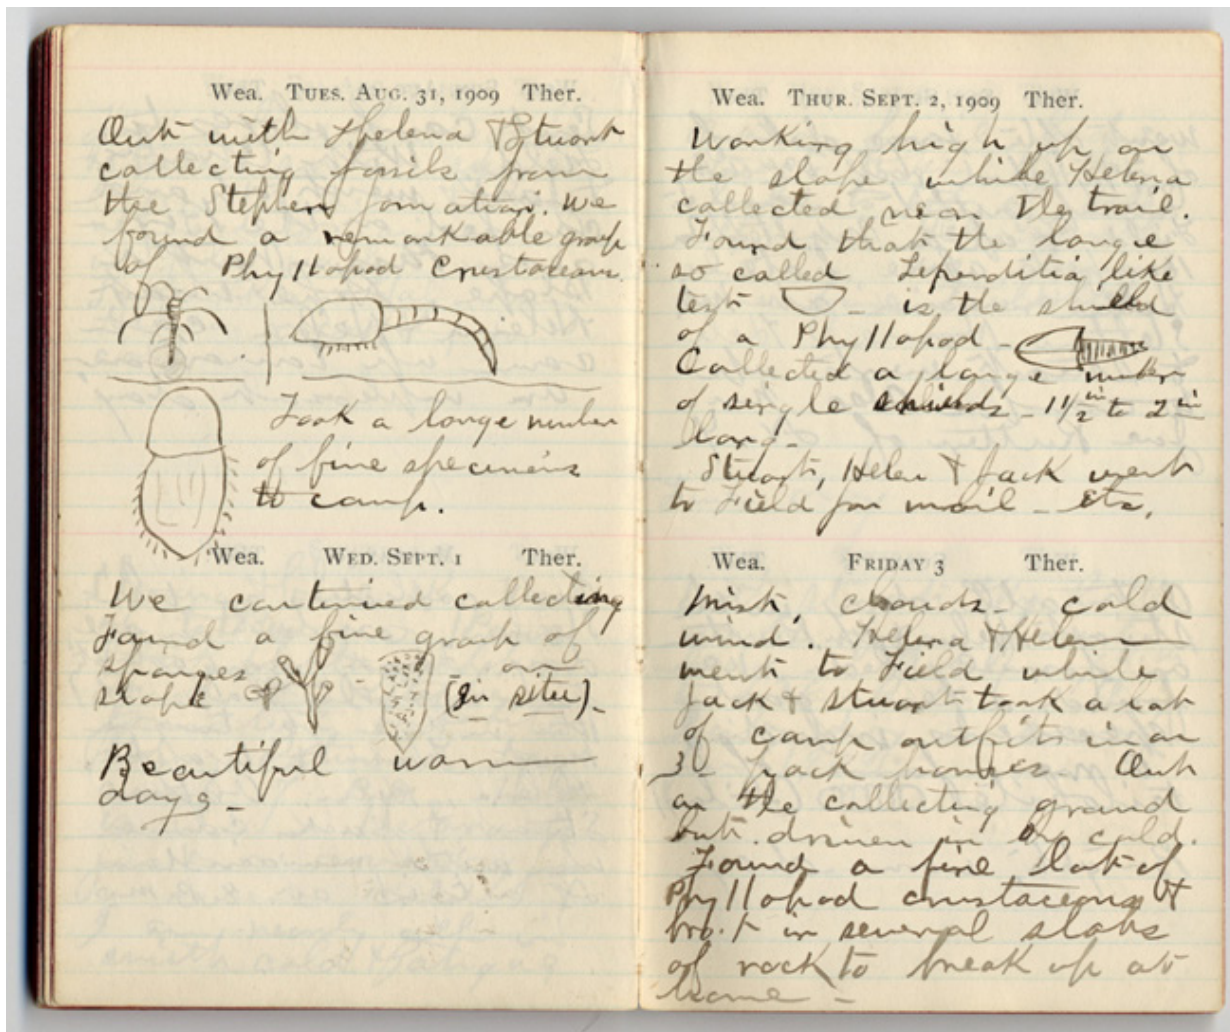 Wea. TUES. AUG. 31, 1909 Ther.
Out with Helena & Stuart
collecting fossils from
the Stephen formation. We
found a remarkable group
of Phyllopod Crustaceans.
Took a large number
of fine specimens
to camp.
Wea. WED. SEPT. 1 Ther.
We continued collecting
Found a fine group of
sponges on
slope (in situ).
Beautiful warm
days-
Wea. THUR. SEPT. 2, 1909 Ther.
Working high up on
the slope while Helena
collected near the trail.
Found that the large
so called Leperditia like
test - is the shield
of a Phyllopod -
Collected a large number
of single shields - 1 1/2 in to 2 in
long-
Stuart, Helen & Jack went
to Field for mail - etc.
Wea. FRIDAY 3 Ther.
Mist, clouds - cold
wind. Helena & Helen
went to Field while
Jack & Stuart took a lot
of camp outfits in on
3 - pack horses - Out
on the collecting ground
but driven in by cold.
Found a fine lot of
Phyllopod crustaceans &
bro't in several slabs
of rock to break up at
home -